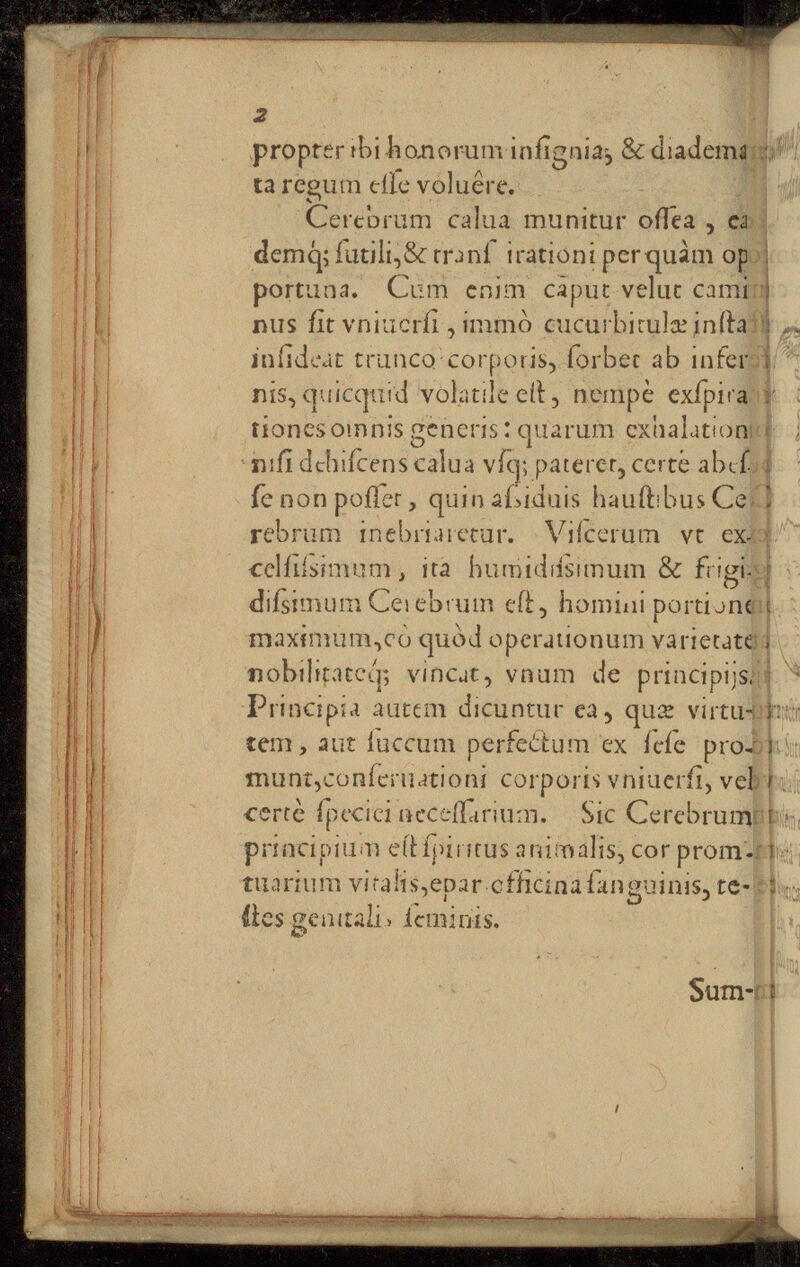 2
propter ibi honorum insignia, & diadema
ta regum esse voluêre.
Cerebrum calua munitur ossea , ea
demq; sutili, & transf irationi perquàm op
portuna. Cùm enim caput velut cami
nus sit vniuersi , immò cucurbitulæ insta
insideat trunco corporis, sorbet ab infer
nis, quicquid volatile est, nempè exspira
tiones omnis generis: quarum exhalationi
nisi dehiscens calua vsq; pateret, certè abes
se non posset, quin assiduis haustibus Ce
rebrum inebriaretur. Viscerum vt ex-
celsissimum, ita humidissimum & frigi-
dissimum Cerebrum est, homini portione
maximum, eò quòd operationum varietate
nobilitateq; vincat, vnum de principijs.
Principia autem dicuntur ea, quæ virtu-
tem, aut succum perfectum ex sese pro-
munt, conseruationi corporis vniuersi, vel
certè speciei necessarium. Sic Cerebrum
principium est spiritus animalis, cor prom-
tuarium vitalis, epar officina sanguinis, te-
stes genitalis seminis.
Sum-